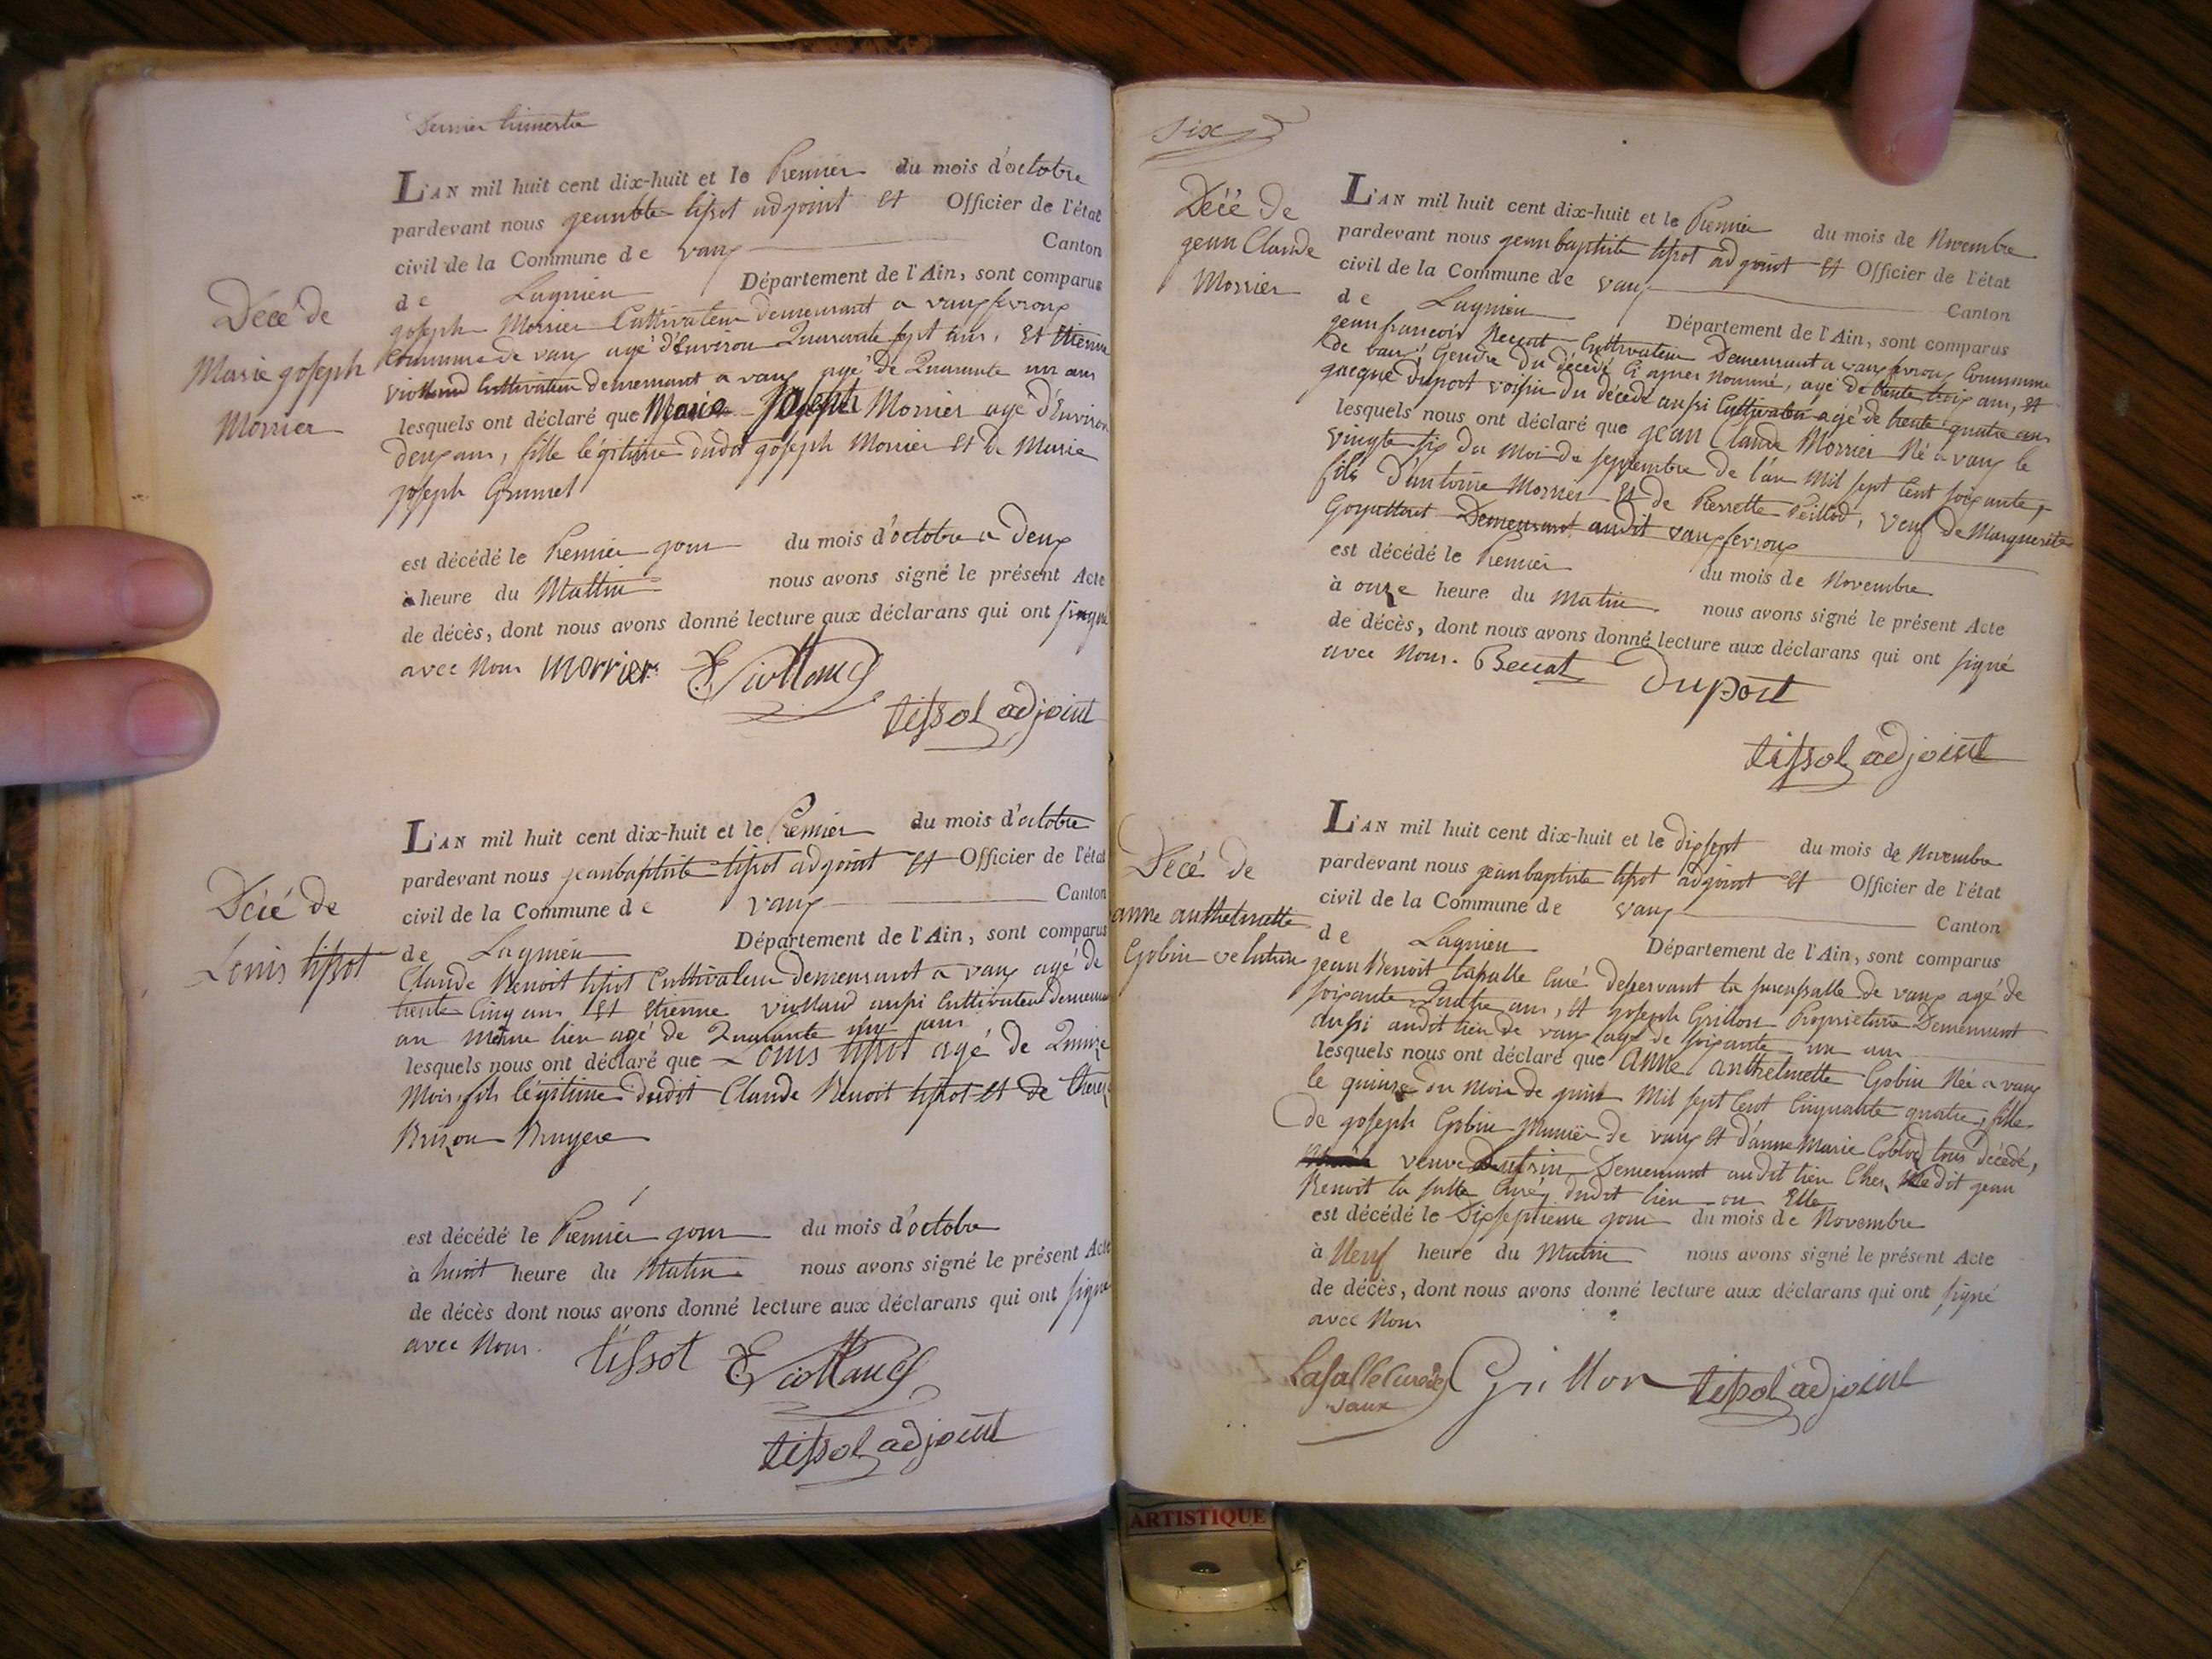 Dernier trimestre
L'AN mil huit cent dix-huit et le Premier du mois d'octobre
pardevant nous jeanbte tissot adjoint et Officier de l'état
civil de la Commune de vaux Canton
de Lagnieu Département de l'Ain, sont comparus
joseph Morrier Cultivateur demeurant a vauxfevroux
Commune de vaux agé d'Environ Quarante sept ans, Et Etienne
viottand Cultivateur demeurant a vaux agé de Quarante un ans
lesquels ont déclaré que Marie Joseph Morrier agé d'Environ
deux ans, fille légitime dudit joseph Morrier et de Marie
joseph Grumet
est décédé le Premier jour du mois d'octobre a Deux
à heure du Mattin nous avons signé le présent Acte
de décès, dont nous avons donné lecture aux déclarans qui ont signé
avec Nous morrier E Viottand
tissot adjoint
Décé de
Marie joseph
Morrier
L'AN mil huit cent dix-huit et le Premier du mois d'octobre
pardevant nous jeanbaptiste tissot adjoint et Officier de l'état
civil de la Commune de vaux Canton
de Lagnieu Département de l'Ain, sont comparus
Claude Benoit tissot Cultivateur demeurant a vaux agé de
trente Cinq ans Et Etienne viottand aussi Cultivateur demeurant
au même lieu agé de Quarante un ans
lesquels nous ont déclaré que Louis tissot agé de Quinze
Mois, fils légitime dudit Claude Benoit tissot et de
Bruyere
est décédé le Premier jour du mois d'octobre
à huit heure du Matin nous avons signé le présent Acte
de décès dont nous avons donné lecture aux déclarans qui ont signé
avec Nous. tissot E Viottand
tissot adjoint
Décé de
Louis tissot
Six
L'AN mil huit cent dix-huit et le Premier du mois de Novembre
pardevant nous jean baptiste tissot adjoint et Officier de l'état
civil de la Commune de vaux Canton
de Lagnieu Département de l'Ain, sont comparus
jean françois Beccat Cultivateur Demeurant a vauxfevroux Commune
de vaux, Gendre du décédé Ci apres Nommé, agé de trente trois ans, Et
jacque Duport voisin du décédé aussi Cultivateur agé de trente quatre ans
lesquels nous ont déclaré que jean Claude Morrier Né a vaux le
vingte six du moi de septembre de l'an mil sept cent soixante,
fils D'antoine Morrier Et de Pierrette Peillod, veuf de Marguerite
Demeurant audit vauxfevroux
est décédé le Premier du mois de Novembre
à onze heure du Matin nous avons signé le présent Acte
de décès, dont nous avons donné lecture aux déclarans qui ont signé
avec Nous. Beccat Duport
tissot adjoint
Décé de
jean Claude
Morrier
L'AN mil huit cent dix-huit et le dixsept du mois de Novembre
pardevant nous jeanbaptiste tissot adjoint et Officier de l'état
civil de la Commune de vaux Canton
de Lagnieu Département de l'Ain, sont comparus
jean Benoit lasalle Curé desservant la sucursalle de vaux agé de
soixante Quatre ans, et joseph Grillon Proprietaire Demeurant
aussi audit lieu de vaux agé de soixante un ans
lesquels nous ont déclaré que anne anthelmette Gobin Née a vaux
le quinze du Mois de juin Mil sept Cent Cinquante quatre, fille
de joseph Gobin Munier de vaux et d'anne Marie tous décédé,
veuve Demeurant audit lieu Chez ledit jean
Benoit la salle Curé dudit lieu ou Elle
est décédé le Dixseptieme jour du mois de Novembre
à Neuf heure du Matin nous avons signé le présent Acte
de décès, dont nous avons donné lecture aux déclarans qui ont signé
avec Nous
Lasalle Curé de vaux Grillon tissot adjoint
Décé de
anne anthelmette
Gobin ve
ARTISTIQUE